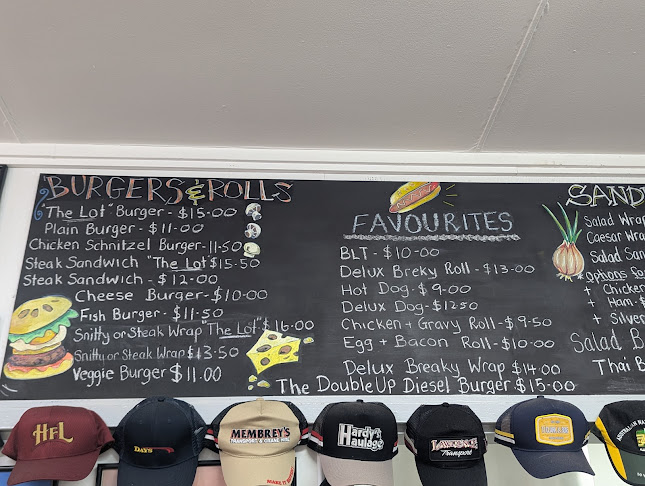 BURGERS & ROLLS
"The Lot" Burger - $15.00
Plain Burger - $11.00
Chicken Schnitzel Burger - 11.50
Steak Sandwich "The Lot" $15.50
Steak Sandwich - $12.00
Cheese Burger - $10.00
Fish Burger - $11.50
Snitty or Steak Wrap "The Lot" $16.00
Snitty or Steak Wrap $13.50
Veggie Burger $11.00
FAVOURITES
BLT - $10.00
Delux Breky Roll - $13.00
Hot Dog - $9.00
Delux Dog - $12.50
Chicken + Gravy Roll - $9.50
Egg + Bacon Roll - $10.00
Delux Breaky Wrap $14.00
The Double Up Diesel Burger $15.00
SAND
Salad Wrap
Caesar Wra
Salad San
Options
+ Chicken
+ Ham - $
+ Silver
Salad B
Thai B
HFL
DAYS
MEMBREY'S
TRANSPORT & CRANE HIRE
Hardy's
Haulage
Transport
AUSTRALIAN